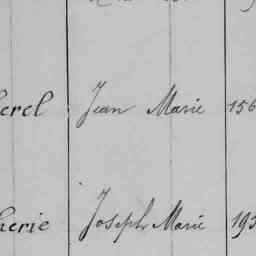 erel Jean Marie 156
herie Joseph Marie 193